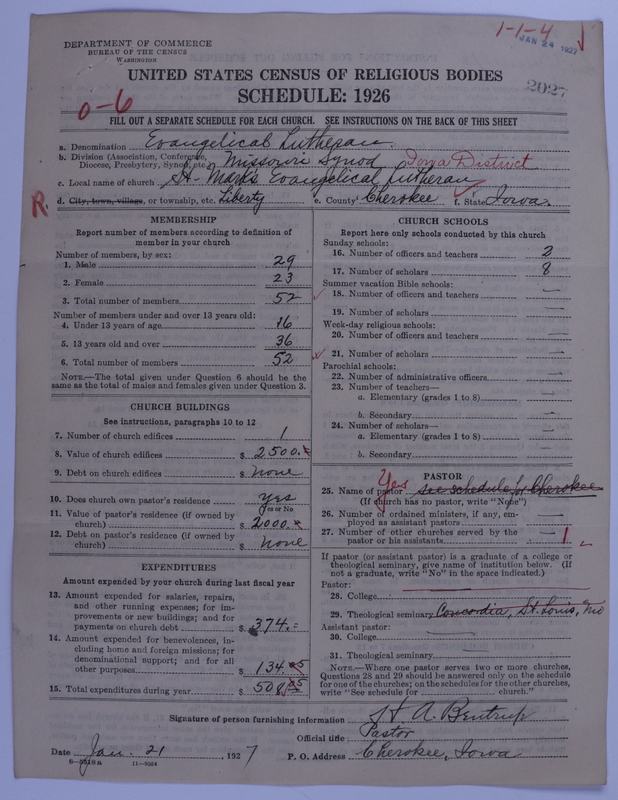 1-1-4
DEPARTMENT OF COMMERCE
BUREAU OF THE CENSUS
WASHINGTON
JAN 24 1927
UNITED STATES CENSUS OF RELIGIOUS BODIES
2027
SCHEDULE: 1926
0-6
FILL OUT A SEPARATE SCHEDULE FOR EACH CHURCH. SEE INSTRUCTIONS ON THE BACK OF THIS SHEET
a. Denomination Evangelical Lutheran.
b. Division (Association, Conference, Diocese, Presbytery, Synod, etc.) Missouri Synod Iowa District
c. Local name of church St. Marks Evangelical Lutheran
R. d. City, town, village, or township, etc. Liberty e. County Cherokee f. State Iowa.
MEMBERSHIP
Report number of members according to definition of
member in your church
Number of members, by sex:
1. Male 29
2. Female 23
3. Total number of members 52
Number of members under and over 13 years old:
4. Under 13 years of age 16
5. 13 years old and over 36
6. Total number of members 52
NOTE.—The total given under Question 6 should be the
same as the total of males and females given under Question 3.
CHURCH BUILDINGS
See instructions, paragraphs 10 to 12
7. Number of church edifices 1
8. Value of church edifices $ 2500.
9. Debt on church edifices $ none
10. Does church own pastor's residence yes
Yes or No
11. Value of pastor's residence (if owned by
church) $ 2000.
12. Debt on pastor's residence (if owned by
church) $ none
EXPENDITURES
Amount expended by your church during last fiscal year
13. Amount expended for salaries, repairs,
and other running expenses; for im-
provements or new buildings; and for
payments on church debt $ 374.=
14. Amount expended for benevolences, in-
cluding home and foreign missions; for
denominational support; and for all
other purposes $ 134.05
15. Total expenditures during year $ 508.05
CHURCH SCHOOLS
Report here only schools conducted by this church
Sunday schools:
16. Number of officers and teachers 2
17. Number of scholars 8
Summer vacation Bible schools:
18. Number of officers and teachers —
19. Number of scholars —
Week-day religious schools:
20. Number of officers and teachers —
21. Number of scholars —
Parochial schools:
22. Number of administrative officers —
23. Number of teachers—
a. Elementary (grades 1 to 8) —
b. Secondary —
24. Number of scholars—
a. Elementary (grades 1 to 8) —
b. Secondary —
PASTOR
Yes
25. Name of pastor see schedule for Cherokee
(If church has no pastor, write "None")
26. Number of ordained ministers, if any, em-
ployed as assistant pastors —
27. Number of other churches served by the
pastor or his assistants 1
If pastor (or assistant pastor) is a graduate of a college or
theological seminary, give name of institution below. (If
not a graduate, write "No" in the space indicated.)
Pastor:
28. College
29. Theological seminary Concordia, St. Louis, Mo
Assistant pastor:
30. College —
31. Theological seminary —
NOTE.—Where one pastor serves two or more churches,
Questions 28 and 29 should be answered only on the schedule
for one of the churches; on the schedules for the other churches,
write "See schedule for church."
Signature of person furnishing information H A Bentrup
Official title Pastor
Date Jan. 21, 1927 P. O. Address Cherokee, Iowa